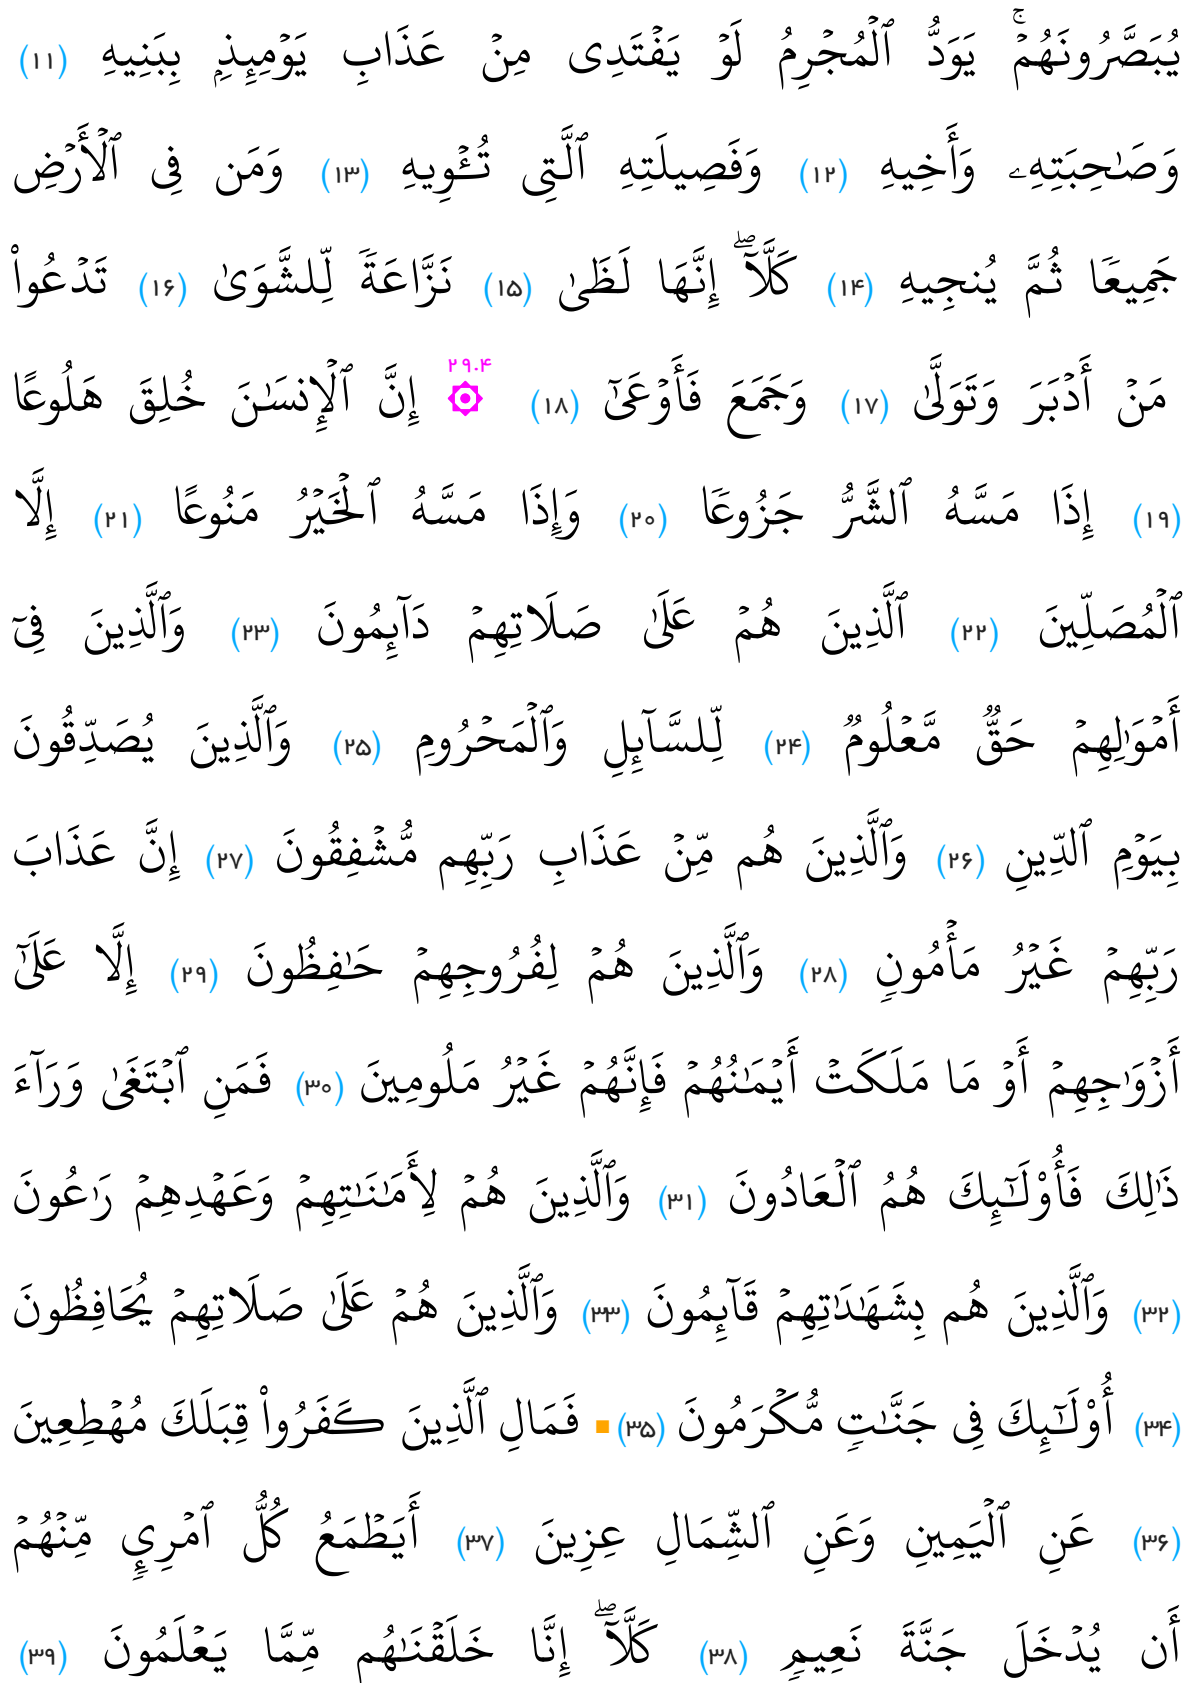 يُبَصَّرُونَهُمْۚ يَوَدُّ ٱلْمُجْرِمُ لَوْ يَفْتَدِى مِنْ عَذَابِ يَوْمِئِذٍۭ بِبَنِيهِ (۱۱)
وَصَـٰحِبَتِهِۦ وَأَخِيهِ (۱۲) وَفَصِيلَتِهِ ٱلَّتِى تُـْٔوِيهِ (۱۳) وَمَن فِى ٱلْأَرْضِ
جَمِيعًا ثُمَّ يُنجِيهِ (۱۴) كَلَّآۖ إِنَّهَا لَظَىٰ (۱۵) نَزَّاعَةً لِّلشَّوَىٰ (۱۶) تَدْعُوا۟
مَنْ أَدْبَرَ وَتَوَلَّىٰ (۱۷) وَجَمَعَ فَأَوْعَىٰٓ (۱۸) ۲۹.۴ ۞ إِنَّ ٱلْإِنسَـٰنَ خُلِقَ هَلُوعًا
(۱۹) إِذَا مَسَّهُ ٱلشَّرُّ جَزُوعًا (۲۰) وَإِذَا مَسَّهُ ٱلْخَيْرُ مَنُوعًا (۲۱) إِلَّا
ٱلْمُصَلِّينَ (۲۲) ٱلَّذِينَ هُمْ عَلَىٰ صَلَاتِهِمْ دَآئِمُونَ (۲۳) وَٱلَّذِينَ فِىٓ
أَمْوَٰلِهِمْ حَقٌّ مَّعْلُومٌ (۲۴) لِّلسَّآئِلِ وَٱلْمَحْرُومِ (۲۵) وَٱلَّذِينَ يُصَدِّقُونَ
بِيَوْمِ ٱلدِّينِ (۲۶) وَٱلَّذِينَ هُم مِّنْ عَذَابِ رَبِّهِم مُّشْفِقُونَ (۲۷) إِنَّ عَذَابَ
رَبِّهِمْ غَيْرُ مَأْمُونٍ (۲۸) وَٱلَّذِينَ هُمْ لِفُرُوجِهِمْ حَـٰفِظُونَ (۲۹) إِلَّا عَلَىٰٓ
أَزْوَٰجِهِمْ أَوْ مَا مَلَكَتْ أَيْمَـٰنُهُمْ فَإِنَّهُمْ غَيْرُ مَلُومِينَ (۳۰) فَمَنِ ٱبْتَغَىٰ وَرَآءَ
ذَٰلِكَ فَأُو۟لَـٰٓئِكَ هُمُ ٱلْعَادُونَ (۳۱) وَٱلَّذِينَ هُمْ لِأَمَـٰنَـٰتِهِمْ وَعَهْدِهِمْ رَٰعُونَ
(۳۲) وَٱلَّذِينَ هُم بِشَهَـٰدَٰتِهِمْ قَآئِمُونَ (۳۳) وَٱلَّذِينَ هُمْ عَلَىٰ صَلَاتِهِمْ يُحَافِظُونَ
(۳۴) أُو۟لَـٰٓئِكَ فِى جَنَّـٰتٍ مُّكْرَمُونَ (۳۵) فَمَالِ ٱلَّذِينَ كَفَرُوا۟ قِبَلَكَ مُهْطِعِينَ
(۳۶) عَنِ ٱلْيَمِينِ وَعَنِ ٱلشِّمَالِ عِزِينَ (۳۷) أَيَطْمَعُ كُلُّ ٱمْرِئٍ مِّنْهُمْ
أَن يُدْخَلَ جَنَّةَ نَعِيمٍ (۳۸) كَلَّآۖ إِنَّا خَلَقْنَـٰهُم مِّمَّا يَعْلَمُونَ (۳۹)